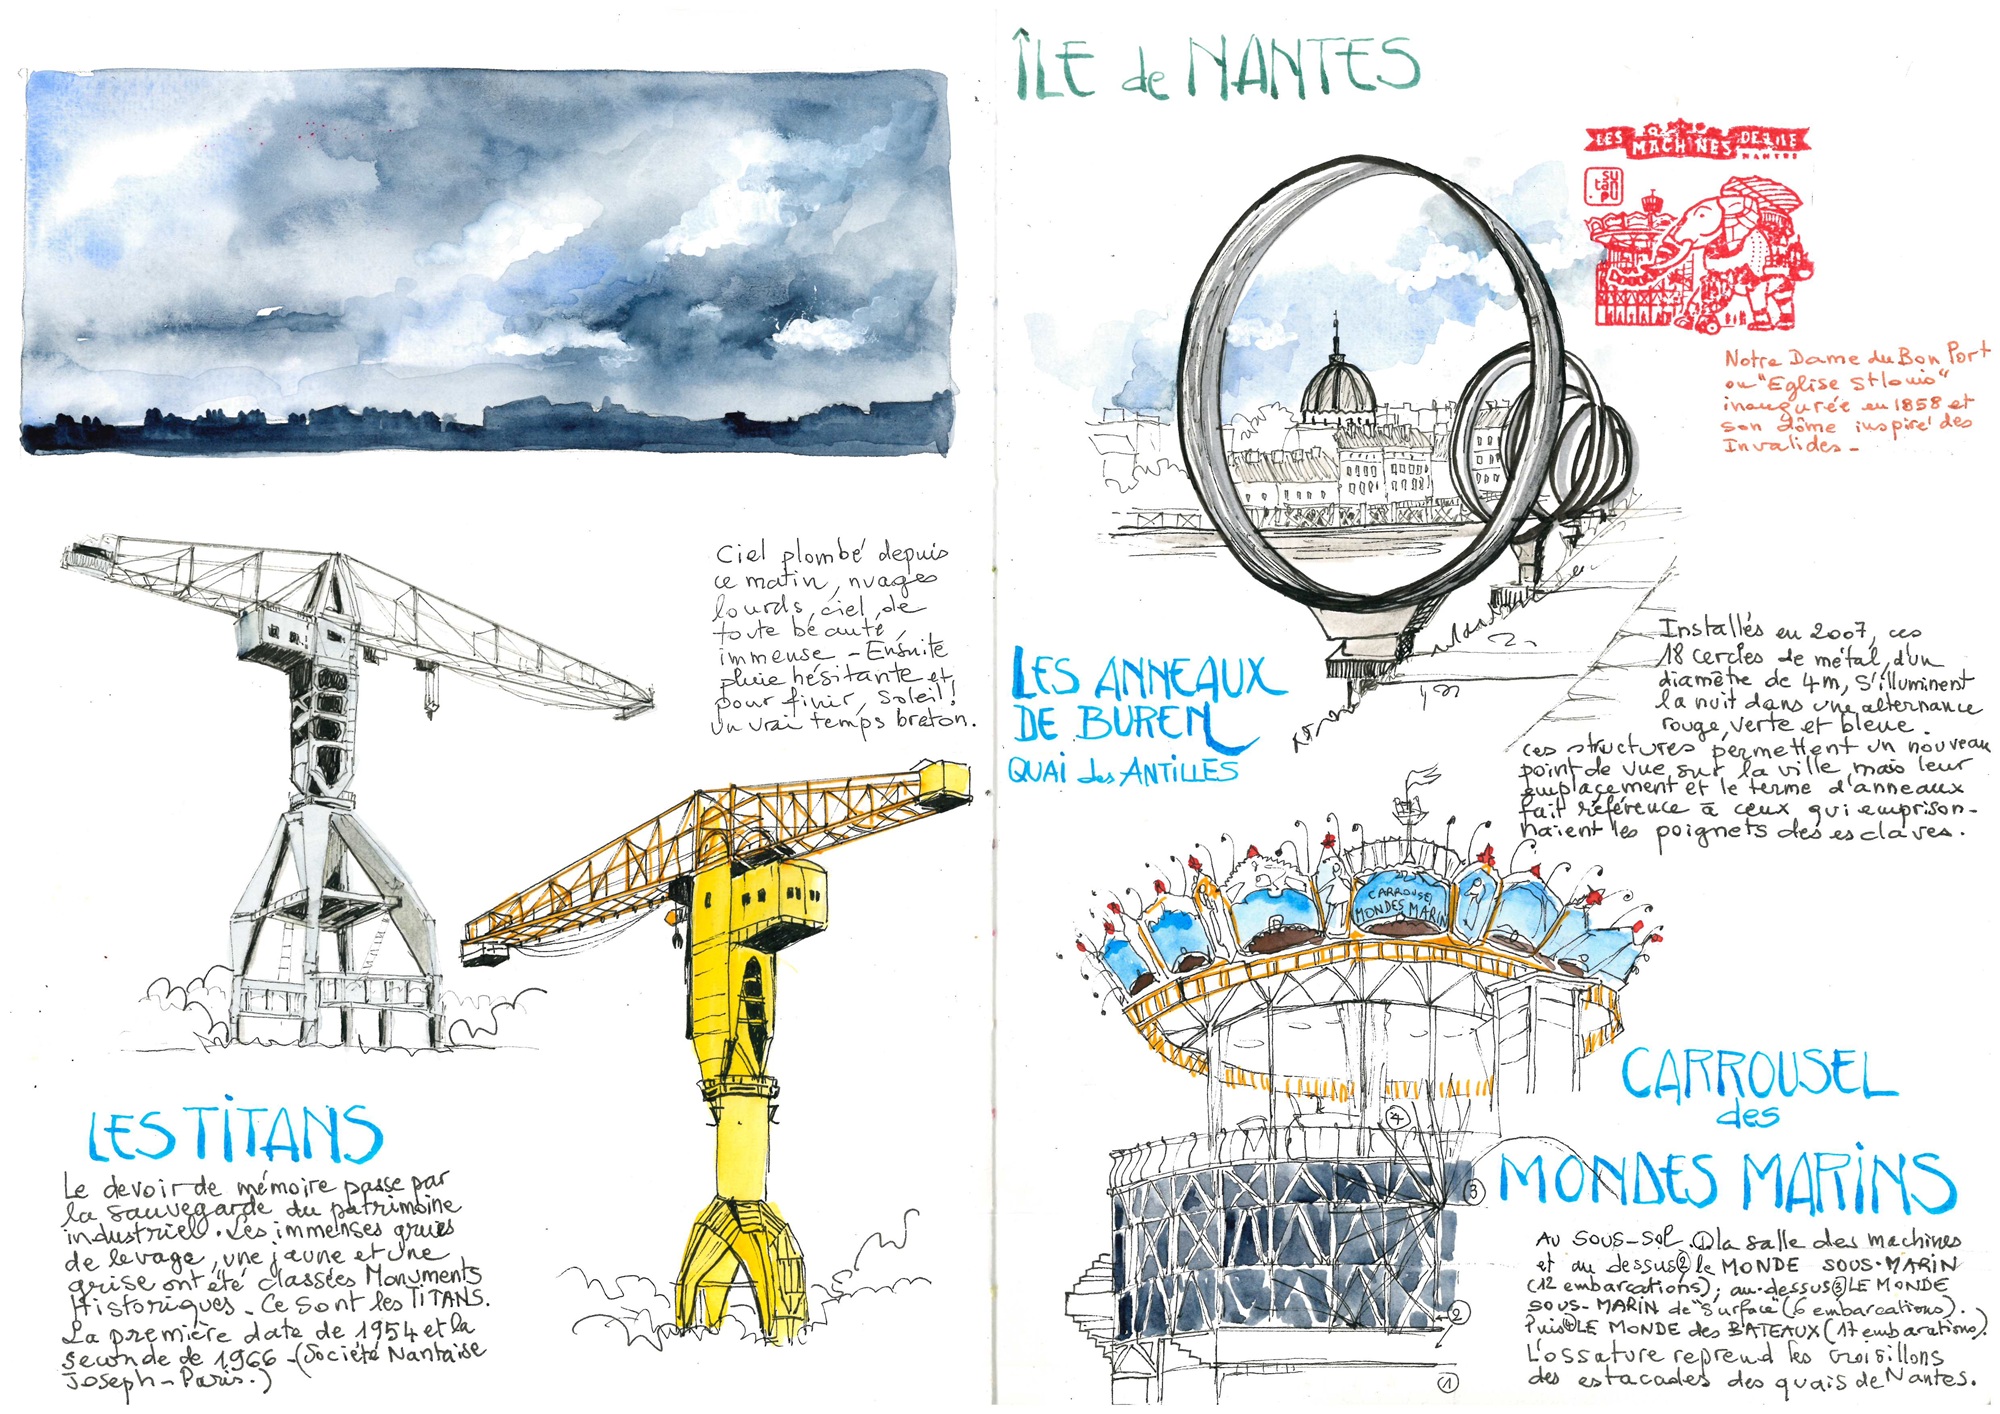 Ciel plombé depuis
ce matin, nuages
lourds, ciel de
toute beauté,
immense - Ensuite
pluie hésitante et
pour finir, soleil!
un vrai temps breton.
LES TITANS
Le devoir de mémoire passe par
la sauvegarde du patrimoine
industriel. Les immenses grues
de levage, une jaune et une
grise ont été classées Monuments
Historiques. Ce sont les TITANS.
La première date de 1954 et la
seconde de 1966 - (Société Nantaise
Joseph-Paris.)
ÎLE de NANTES
LES MACHINES DE L'ILE
NANTES
su
tan
pu
Notre Dame du Bon Port
ou "Eglise St louis"
inaugurée en 1858 et
son dôme inspiré des
Invalides -
LES ANNEAUX
DE BUREN
QUAI des ANTILLES
Installés en 2007, ces
18 cercles de métal, d'un
diamètre de 4m, s'illuminent
la nuit dans une alternance
rouge, verte et bleue.
ces structures permettent un nouveau
point de vue sur la ville, mais leur
emplacement et le terme d'anneaux
fait référence à ceux qui emprison-
naient les poignets des esclaves.
CARROUSEL
MONDES MARIN
CARROUSEL
des
MONDES MARINS
4
3
2
1
AU SOUS-SOL ① la salle des machines
et au dessus ② le MONDE SOUS-MARIN
(12 embarcations); au-dessus ③ LE MONDE
SOUS-MARIN de "Surface" (6 embarcations).
Puis ④ LE MONDE des BATEAUX (17 embarations).
L'ossature reprend les croisillons
des estacades des quais de Nantes.